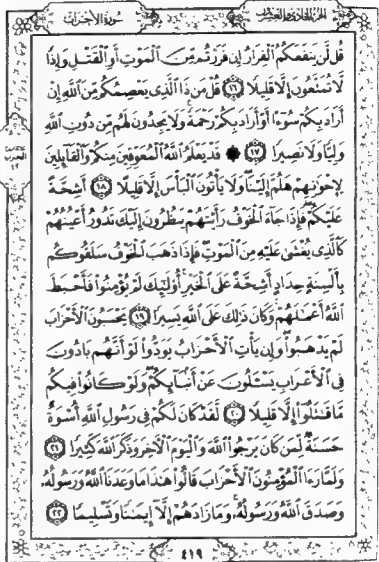 الجزء الحادي والعشرون
سورة الأحزاب
قُل لَّن يَنفَعَكُمُ ٱلْفِرَارُ إِن فَرَرْتُم مِّنَ ٱلْمَوْتِ أَوِ ٱلْقَتْلِ وَإِذًا
لَّا تُمَتَّعُونَ إِلَّا قَلِيلًا ١٦ قُلْ مَن ذَا ٱلَّذِى يَعْصِمُكُم مِّنَ ٱللَّهِ إِنْ
أَرَادَ بِكُمْ سُوٓءًا أَوْ أَرَادَ بِكُمْ رَحْمَةً وَلَا يَجِدُونَ لَهُم مِّن دُونِ ٱللَّهِ
وَلِيًّا وَلَا نَصِيرًا ١٧ قَدْ يَعْلَمُ ٱللَّهُ ٱلْمُعَوِّقِينَ مِنكُمْ وَٱلْقَآئِلِينَ
لِإِخْوَٰنِهِمْ هَلُمَّ إِلَيْنَا وَلَا يَأْتُونَ ٱلْبَأْسَ إِلَّا قَلِيلًا ١٨ أَشِحَّةً
عَلَيْكُمْ فَإِذَا جَآءَ ٱلْخَوْفُ رَأَيْتَهُمْ يَنظُرُونَ إِلَيْكَ تَدُورُ أَعْيُنُهُمْ
كَٱلَّذِى يُغْشَىٰ عَلَيْهِ مِنَ ٱلْمَوْتِ فَإِذَا ذَهَبَ ٱلْخَوْفُ سَلَقُوكُم
بِأَلْسِنَةٍ حِدَادٍ أَشِحَّةً عَلَى ٱلْخَيْرِ أُو۟لَٰٓئِكَ لَمْ يُؤْمِنُوا۟ فَأَحْبَطَ
ٱللَّهُ أَعْمَٰلَهُمْ وَكَانَ ذَٰلِكَ عَلَى ٱللَّهِ يَسِيرًا ١٩ يَحْسَبُونَ ٱلْأَحْزَابَ
لَمْ يَذْهَبُوا۟ وَإِن يَأْتِ ٱلْأَحْزَابُ يَوَدُّوا۟ لَوْ أَنَّهُم بَادُونَ
فِى ٱلْأَعْرَابِ يَسْـَٔلُونَ عَنْ أَنۢبَآئِكُمْ وَلَوْ كَانُوا۟ فِيكُم
مَّا قَٰتَلُوٓا۟ إِلَّا قَلِيلًا ٢٠ لَّقَدْ كَانَ لَكُمْ فِى رَسُولِ ٱللَّهِ أُسْوَةٌ
حَسَنَةٌ لِّمَن كَانَ يَرْجُوا۟ ٱللَّهَ وَٱلْيَوْمَ ٱلْءَاخِرَ وَذَكَرَ ٱللَّهَ كَثِيرًا ٢١
وَلَمَّا رَءَا ٱلْمُؤْمِنُونَ ٱلْأَحْزَابَ قَالُوا۟ هَٰذَا مَا وَعَدَنَا ٱللَّهُ وَرَسُولُهُۥ
وَصَدَقَ ٱللَّهُ وَرَسُولُهُۥ وَمَا زَادَهُمْ إِلَّآ إِيمَٰنًا وَتَسْلِيمًا ٢٢
٤١٩